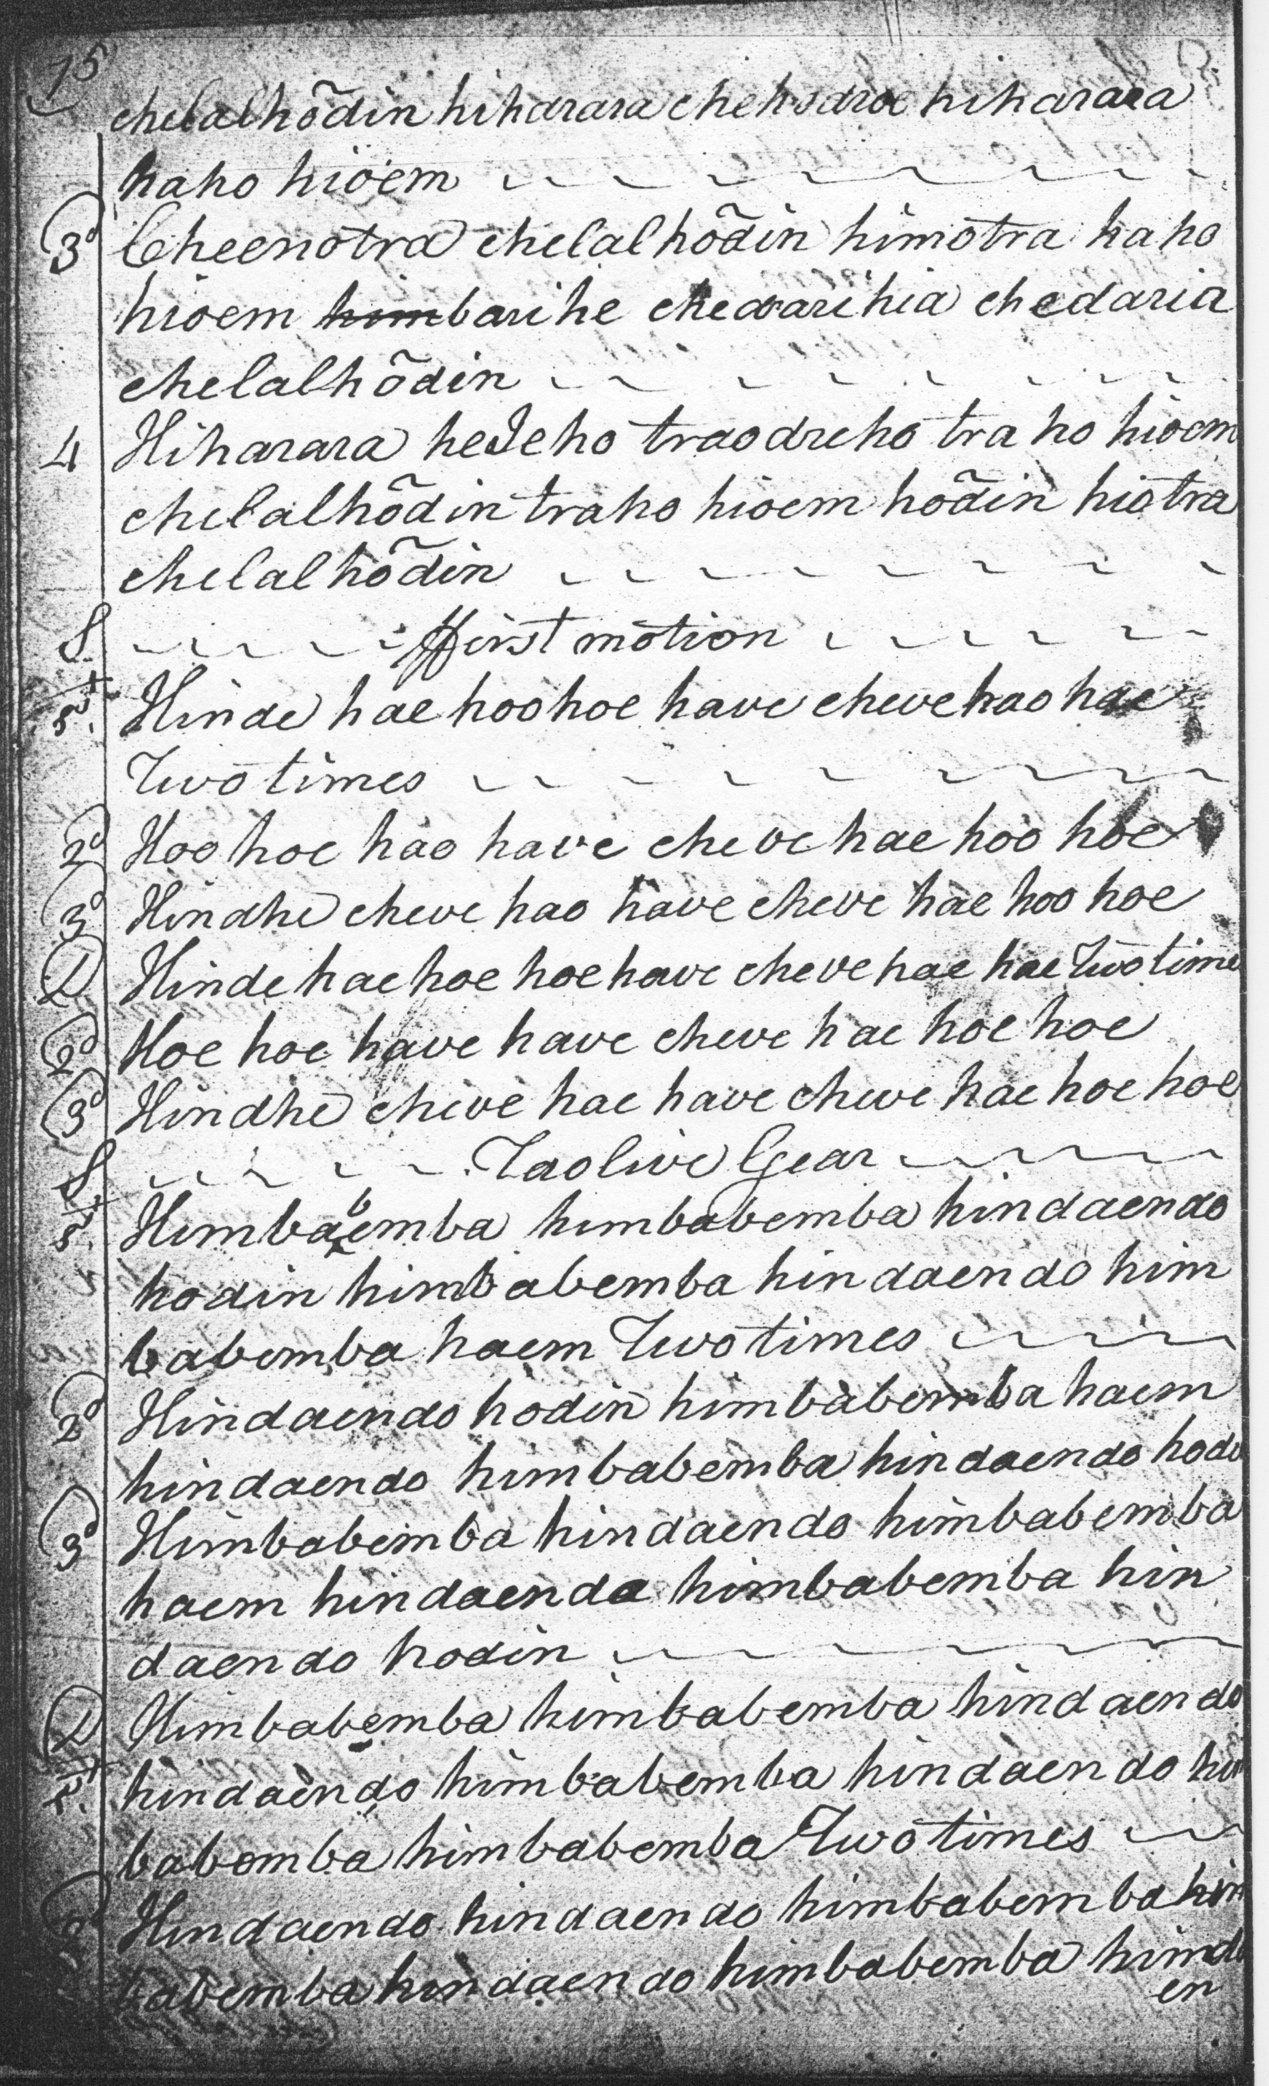 15
chelalhõdin hiharara chehodroe hiharara
haho hioem
3d Cheenotra chelalhõdin himotra haho
hioem himbarihe chedarihia chedaria
chelalhõdin
4 Hiharara heIeho traodreho tra ho hioem
chelalhõdin traho hioem hõdin hiotra
chelalhõdin
S ffirst motion
1st Hinde hae hoo hoe have cheve hao hae
Two times
2d Hoo hoe hao have cheve hae hoo hoe
3d Hindhe cheve hao have cheve hae hoo hoe
D Hinde hae hoe hoe have cheve hae hae Two time
2d Hoe hoe have have cheve hae hoe hoe
3d Hindhe cheve hae have cheve hae hoe hoe
S Taolive Gear
1st Himbabemba himbabemba hindaendo
hodin himbabemba hindaendo him
babemba haem Two times
2d Hindaendo hodin himbabemba haem
hindaendo himbabemba hindaendo hodi
3d Himbabemba hindaendo himbabemba
haem hindaendo himbabemba hin
daendo hodin
D Himbabemba himbabemba hindaendo
1st hindaendo himbabemba hindaendo him
babemba himbabemba Two times
2d Hindaendo hindaendo himbabemba him
babemba hindaendo himbabemba hinda
en